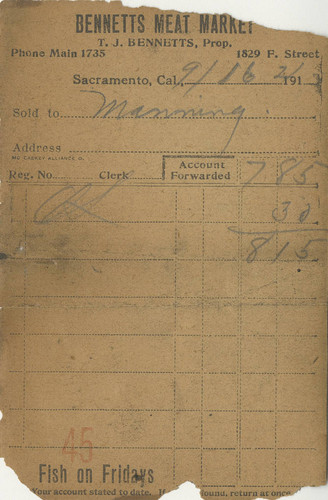 BENNETTS MEAT MARKET
T. J. BENNETTS, Prop.
Phone Main 1735 1829 F. Street
Sacramento, Cal. 9/16 191
Sold to Manning
Address
Reg. No. Clerk Account Forwarded 785
30
815
45
Fish on Fridays
Your account stated to date. If ound, return at once